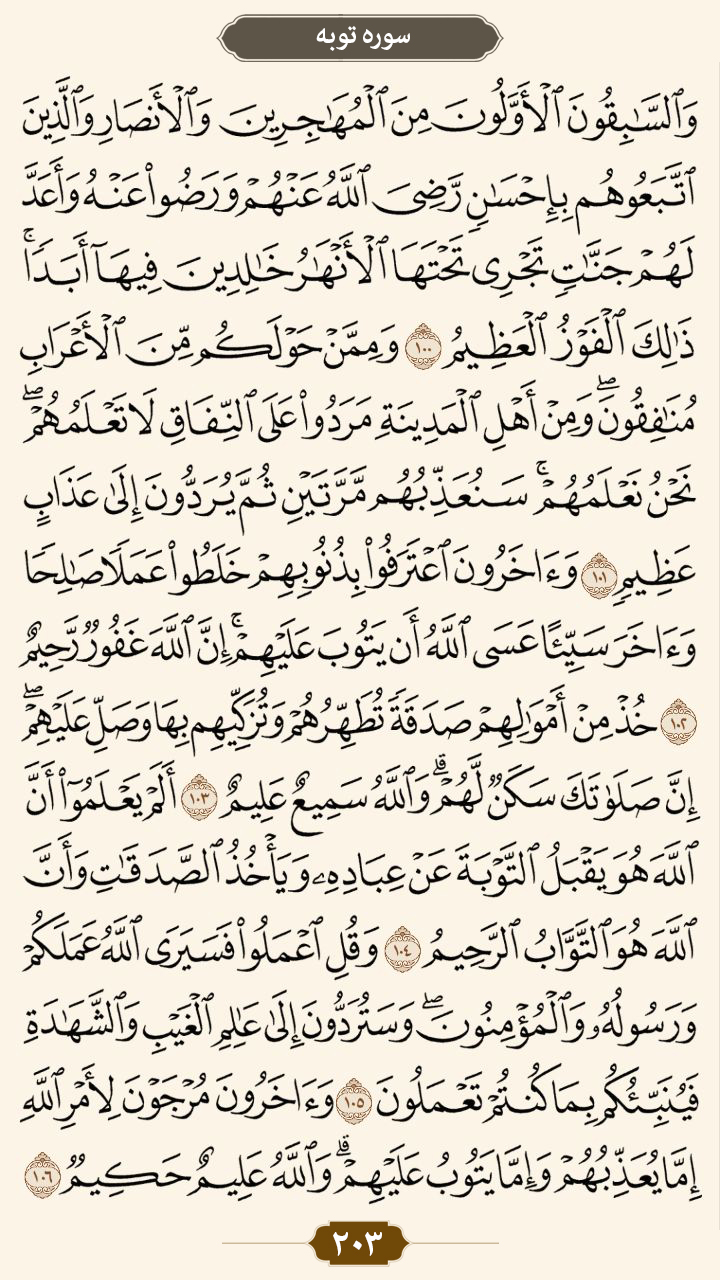 سوره توبه
وَٱلسَّـٰبِقُونَ ٱلْأَوَّلُونَ مِنَ ٱلْمُهَـٰجِرِينَ وَٱلْأَنصَارِ وَٱلَّذِينَ
ٱتَّبَعُوهُم بِإِحْسَـٰنٍ رَّضِىَ ٱللَّهُ عَنْهُمْ وَرَضُوا۟ عَنْهُ وَأَعَدَّ
لَهُمْ جَنَّـٰتٍ تَجْرِى تَحْتَهَا ٱلْأَنْهَـٰرُ خَـٰلِدِينَ فِيهَآ أَبَدًا ۚ
ذَٰلِكَ ٱلْفَوْزُ ٱلْعَظِيمُ ١٠٠ وَمِمَّنْ حَوْلَكُم مِّنَ ٱلْأَعْرَابِ
مُنَـٰفِقُونَ ۖ وَمِنْ أَهْلِ ٱلْمَدِينَةِ مَرَدُوا۟ عَلَى ٱلنِّفَاقِ لَا تَعْلَمُهُمْ ۖ
نَحْنُ نَعْلَمُهُمْ ۚ سَنُعَذِّبُهُم مَّرَّتَيْنِ ثُمَّ يُرَدُّونَ إِلَىٰ عَذَابٍ
عَظِيمٍ ١٠١ وَءَاخَرُونَ ٱعْتَرَفُوا۟ بِذُنُوبِهِمْ خَلَطُوا۟ عَمَلًا صَـٰلِحًا
وَءَاخَرَ سَيِّئًا عَسَى ٱللَّهُ أَن يَتُوبَ عَلَيْهِمْ ۚ إِنَّ ٱللَّهَ غَفُورٌ رَّحِيمٌ
١٠٢ خُذْ مِنْ أَمْوَٰلِهِمْ صَدَقَةً تُطَهِّرُهُمْ وَتُزَكِّيهِم بِهَا وَصَلِّ عَلَيْهِمْ ۖ
إِنَّ صَلَوٰتَكَ سَكَنٌ لَّهُمْ ۗ وَٱللَّهُ سَمِيعٌ عَلِيمٌ ١٠٣ أَلَمْ يَعْلَمُوٓا۟ أَنَّ
ٱللَّهَ هُوَ يَقْبَلُ ٱلتَّوْبَةَ عَنْ عِبَادِهِۦ وَيَأْخُذُ ٱلصَّدَقَـٰتِ وَأَنَّ
ٱللَّهَ هُوَ ٱلتَّوَّابُ ٱلرَّحِيمُ ١٠٤ وَقُلِ ٱعْمَلُوا۟ فَسَيَرَى ٱللَّهُ عَمَلَكُمْ
وَرَسُولُهُۥ وَٱلْمُؤْمِنُونَ ۖ وَسَتُرَدُّونَ إِلَىٰ عَـٰلِمِ ٱلْغَيْبِ وَٱلشَّهَـٰدَةِ
فَيُنَبِّئُكُم بِمَا كُنتُمْ تَعْمَلُونَ ١٠٥ وَءَاخَرُونَ مُرْجَوْنَ لِأَمْرِ ٱللَّهِ
إِمَّا يُعَذِّبُهُمْ وَإِمَّا يَتُوبُ عَلَيْهِمْ ۗ وَٱللَّهُ عَلِيمٌ حَكِيمٌ ١٠٦
٢٠٣